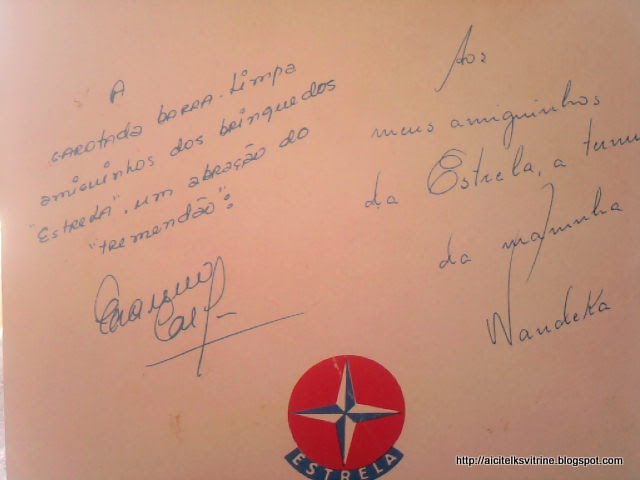 A
GAROTADA BARRA-Limpa
amiguinhos dos brinquedos
"Estrela", um abração do
"tremendão":
Erasmo
Carlos
Aos
meus amiguinhos
da Estrela, a
da maninha
Wandeka
ESTRELA
http://aicitelksvitrine.blogspot.com